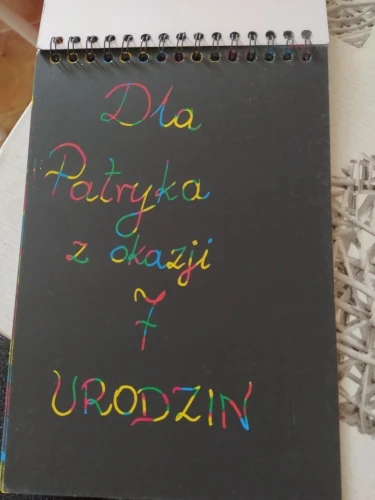 Dla
Patryka
z okazji
7
URODZIN